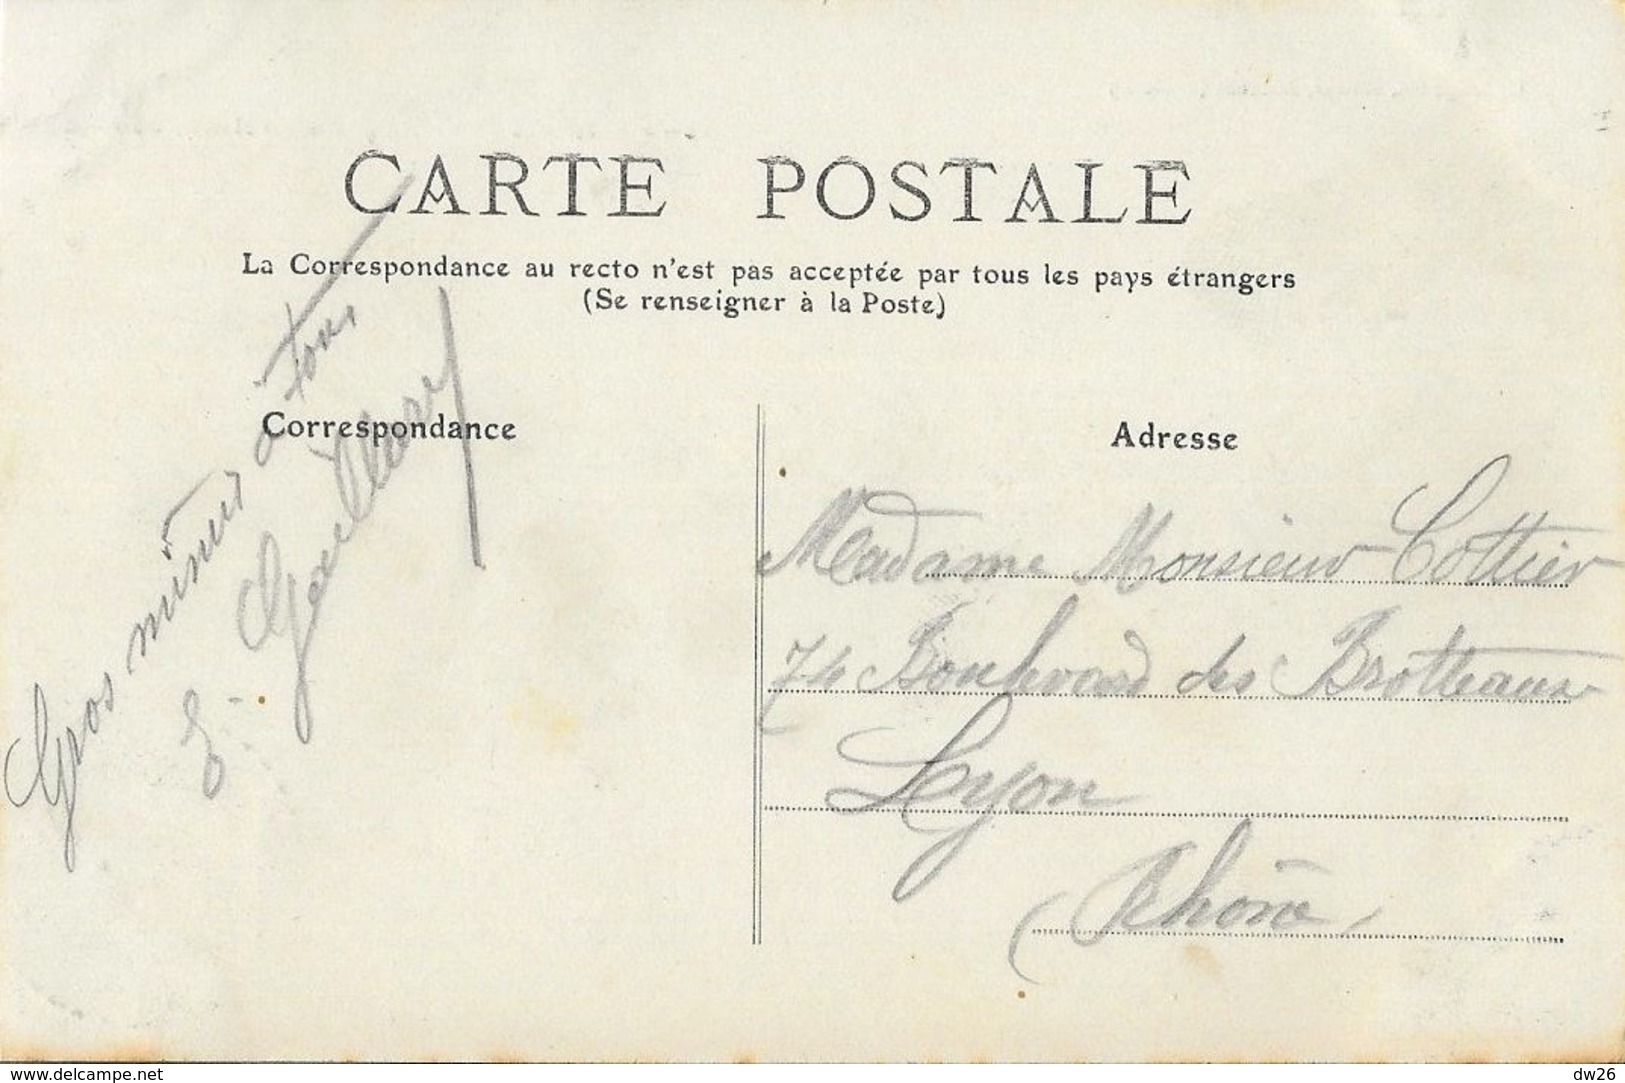 CARTE POSTALE
La Correspondance au recto n'est pas acceptée par tous les pays étrangers
(Se renseigner à la Poste)
Correspondance
Gros mimis à tous
E. Gaillard
Adresse
Madame Monsieur Cottier
74 Boulevard des Brotteaux
Lyon
(Rhône)
www.delcampe.net
dw26